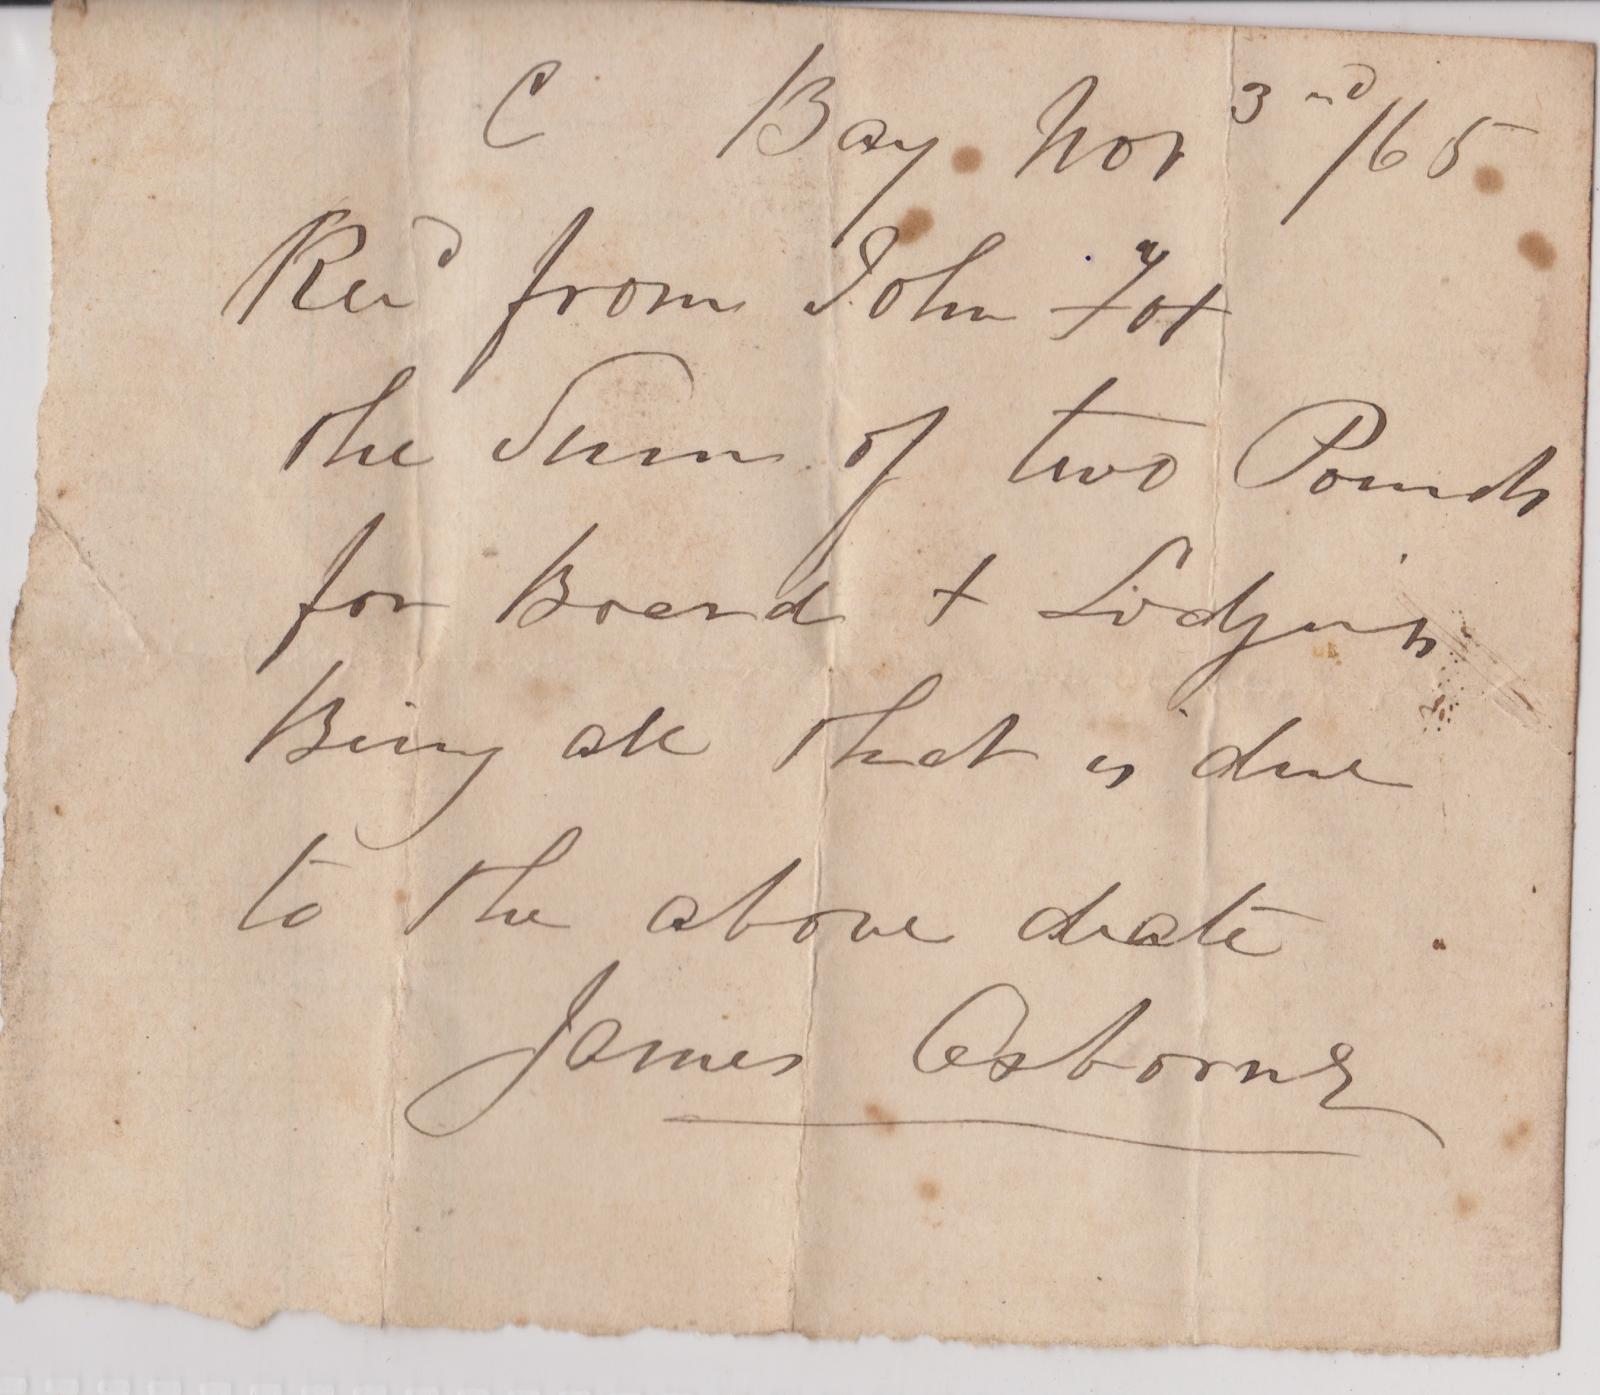 C Bay Nov 3nd /65
Recd from John Fox
the Sum of two Pounds
for Board + Lodgings
Being all that is due
to the above date
James Osborne